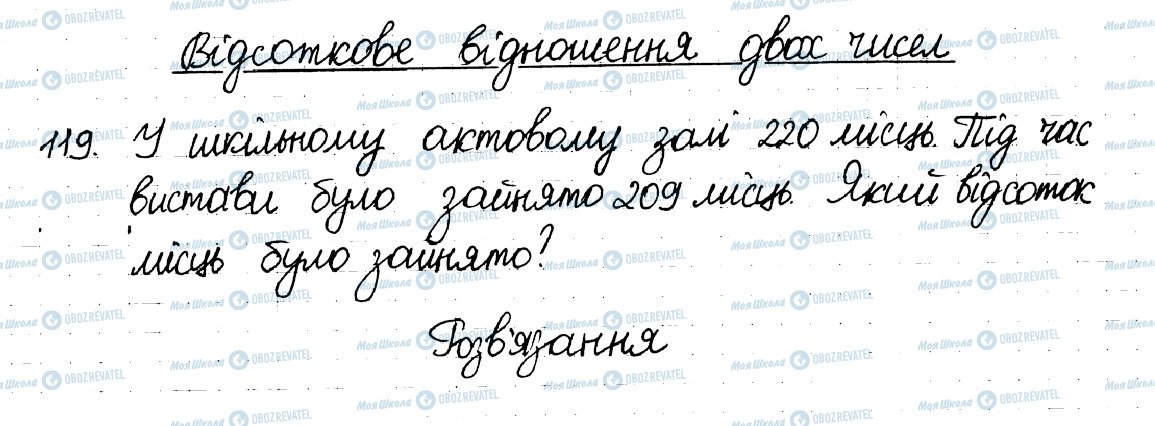 Відсоткове відношення двох чисел
119. У шкільному актовому залі 220 місць. Під час
вистави було зайнято 209 місць. Який відсоток
місць було зайнято?
Розв'язання